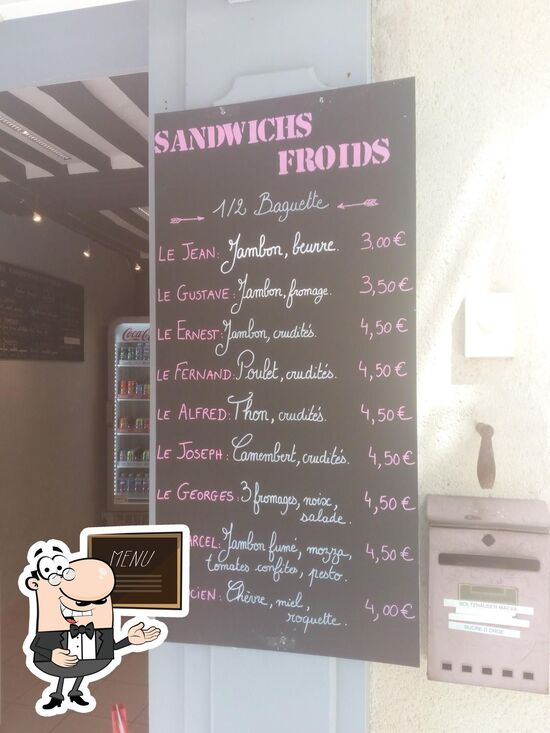 SANDWICHS
FROIDS
1/2 Baguette
LE JEAN: Jambon, beurre. 3,00 €
LE GUSTAVE: Jambon, fromage. 3,50 €
LE ERNEST: Jambon, crudités. 4,50 €
LE FERNAND: Poulet, crudités. 4,50 €
LE ALFRED: Thon, crudités. 4,50 €
LE JOSEPH: Camembert, crudités. 4,50 €
LE GEORGES: 3 fromages, noix, 4,50 €
salade.
ARCEL: Jambon fumé, mozza, 4,50 €
tomates confites, pesto.
CIEN: Chèvre, miel, 4,00 €
roquette.
MENU
Coca
SUCRE D'ORGE